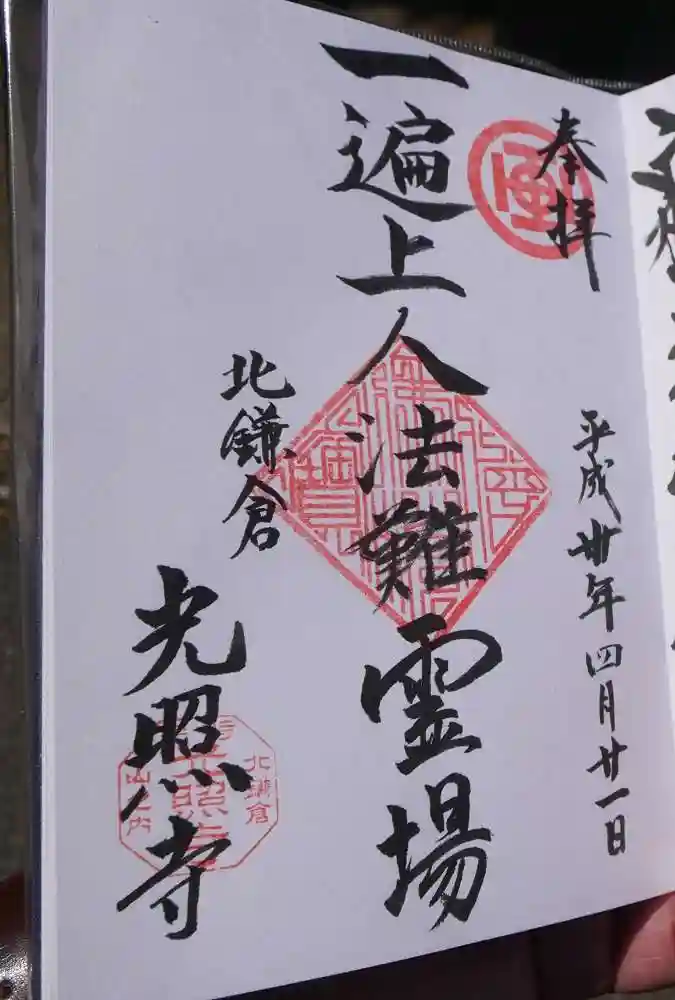 奉拝
平成卅年四月廿一日
一遍上人法難霊場
北鎌倉
光照寺
北鎌倉
光照寺
山之内